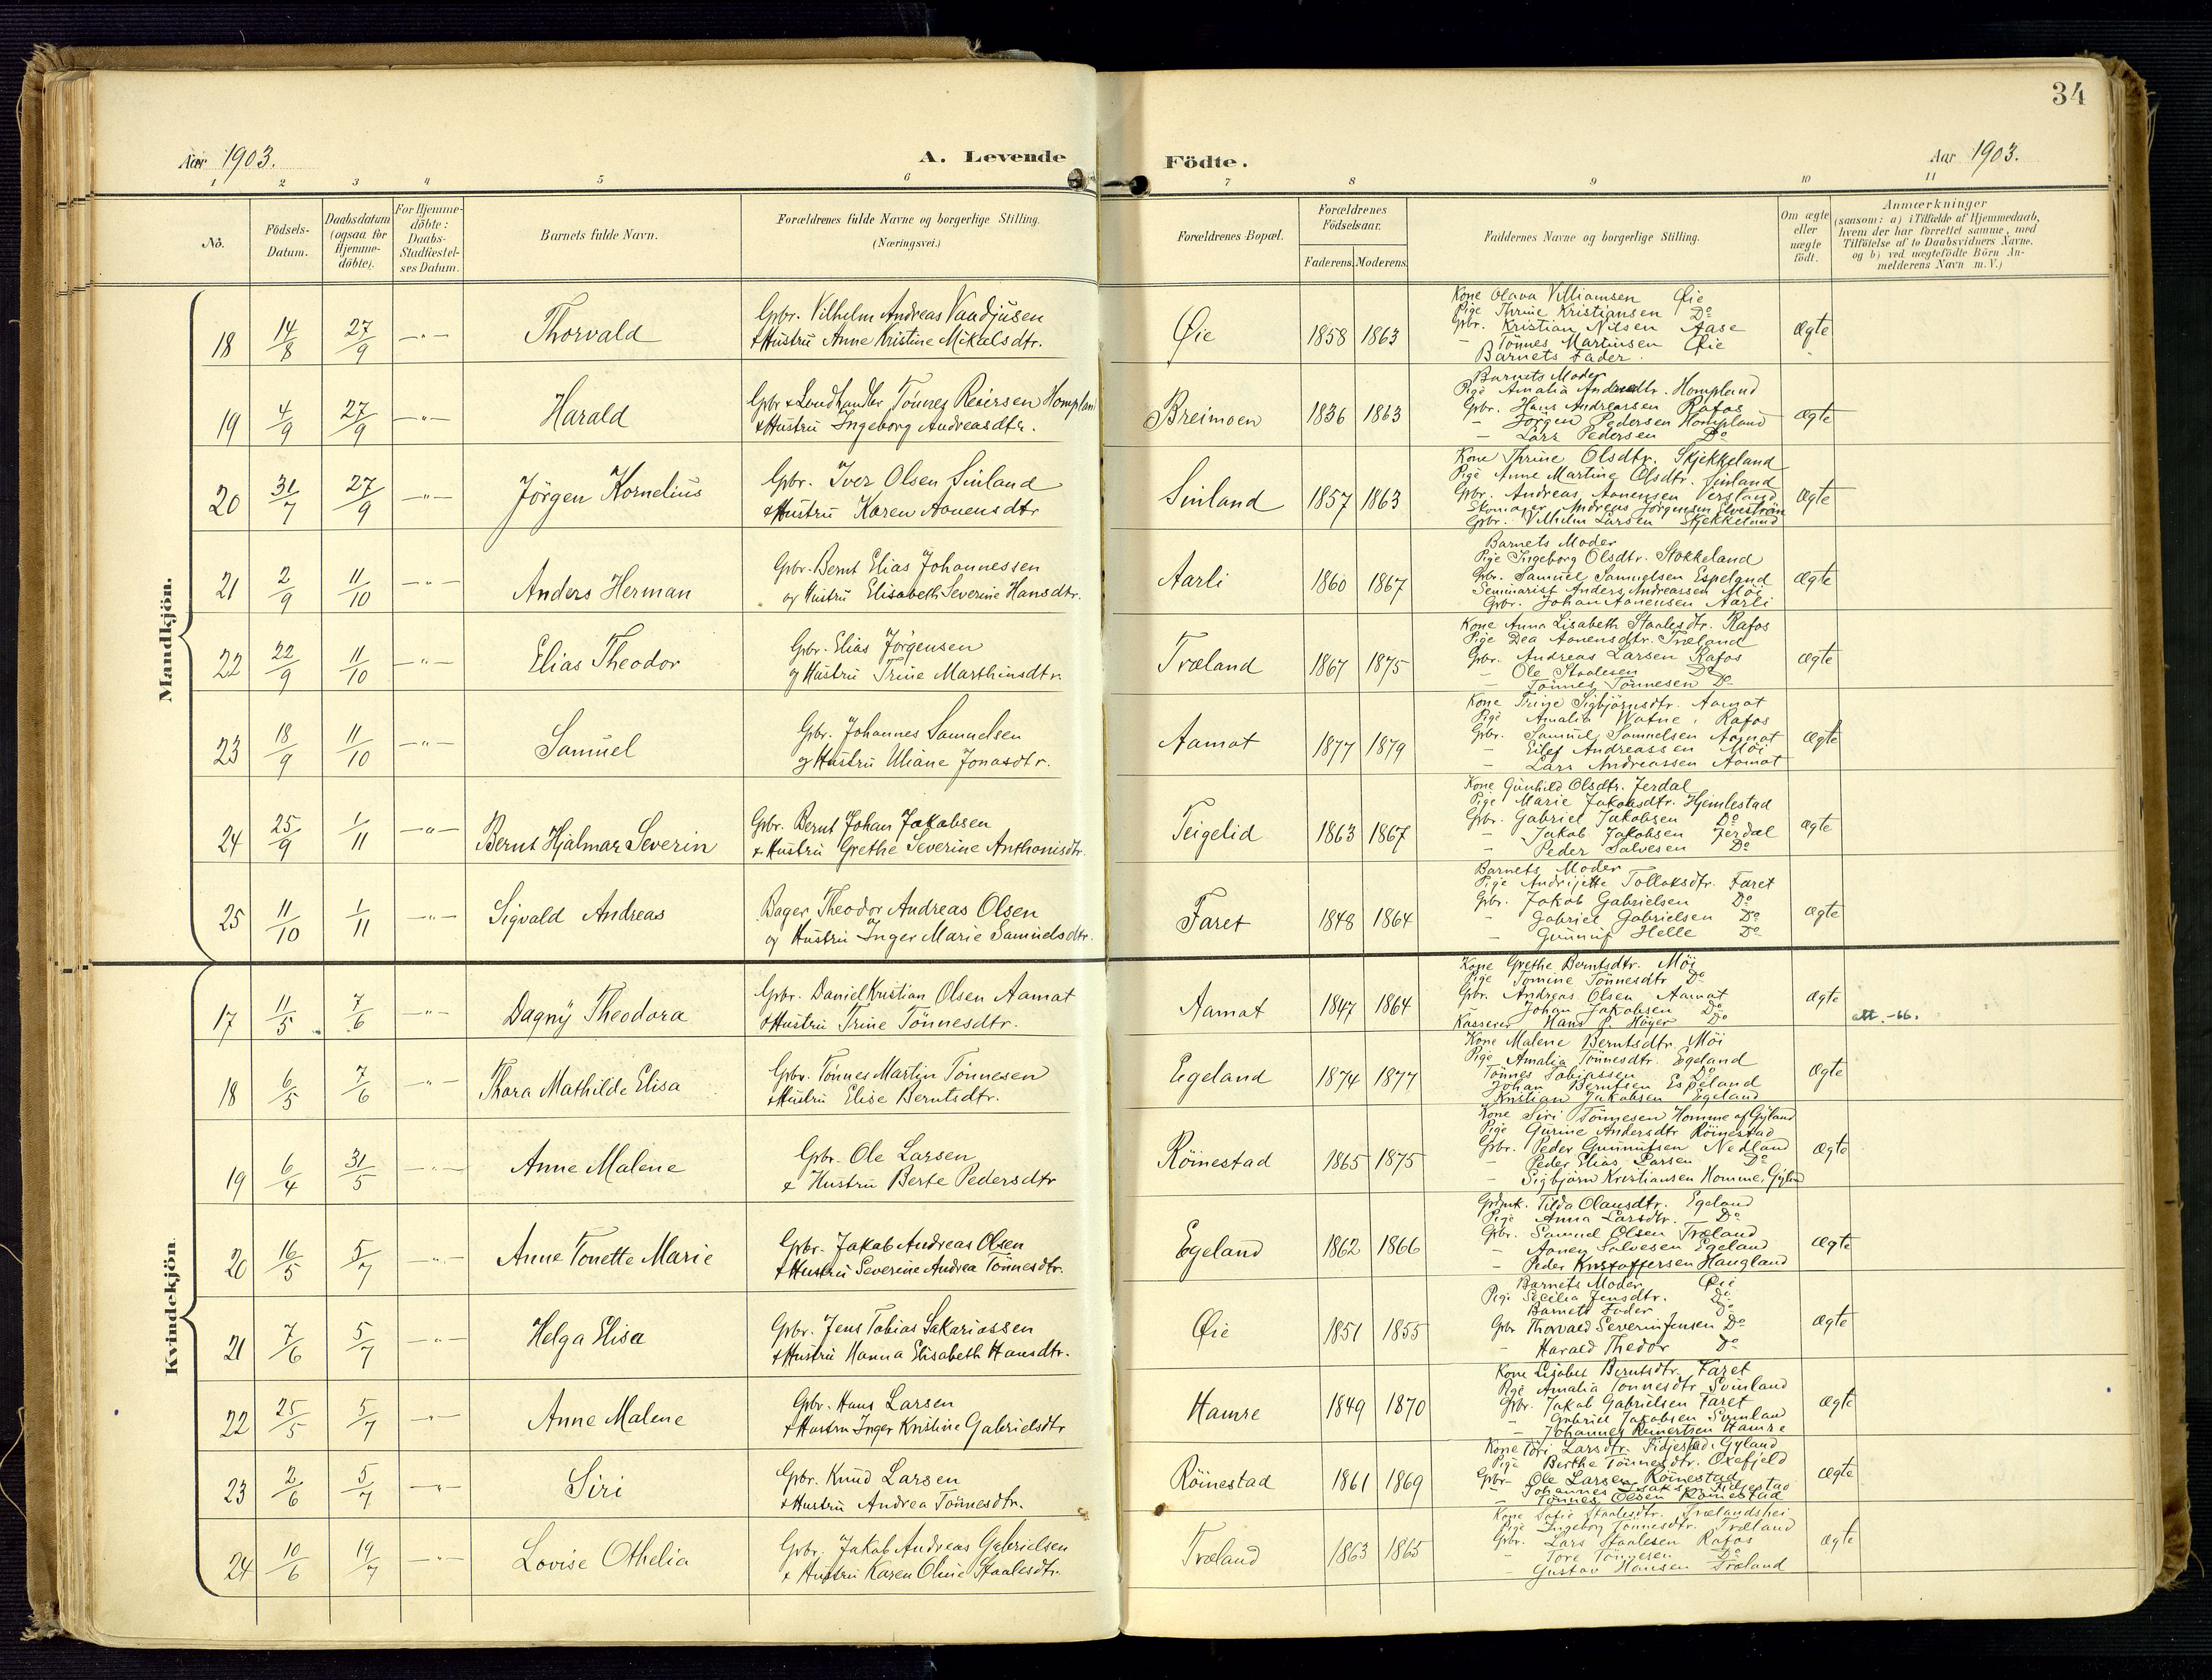 34
Aar 1903.
A. Levende Födte.
Aar 1903.
1 2 3 4 5 6 7 8 9 10 11
No.
Födsels-Datum.
Daabsdatum (ogsaa for Hjemme-döbte).
For Hjemme-döbte: Daabs-Stadfæstel-ses Datum.
Barnets fulde Navn.
Forældrenes fulde Navne og borgerlige Stilling.
(Næringsvei.)
Forældrenes Bopæl.
Forældrenes Födselsaar.
Faderens. Moderens.
Faddernes Navne og borgerlige Stilling.
Om ægte eller uægte födt.
Anmærkninger
(saasom: a) i Tilfælde af Hjemmedaab,
hvem der har forrettet samme, med
Tilföielse af to Daabsvidners Navne,
og b) ved uægtefödte Börn An-
melderens Navn m.V.)
Mandkjön.
18 14/8 27/9 —"— Thorvald
Gbr. Vilhelm Andreas Vaadjusen
& Hustru Anne Kristine Mikalsdtr.
Øie 1858 1863
Kone Olava Villiamsen Øie
Pige Thrine Kristiansen Do
Gbr. Kristian Nilsen Aase
— Tönnes Martinsen Øie
Barnets Fader.
Ægte
19 4/9 27/9 —"— Harald
Gbr & Landhandler Tönnes Reiersen Homplan
& Hustru Ingeborg Andreasdtr.
Breimoen 1836 1863
Barnets Moder
Pige Amalia Andreasdtr. Hompland
Gbr. Hans Andreassen Rafos
— Jörgen Pedersen Hompland
— Lars Pedersen Do
Ægte
20 31/7 27/9 —"— Jörgen Kornelius
Gbr. Iver Olsen Sinland
& Hustru Karen Aanensdtr
Sinland 1857 1863
Kone Thrine Olsdtr. Skjekkeland
Pige Anne Martine Olsdtr. Sinland
Gbr. Andreas Aanensen Versland
Skomager Andreas Jörgensen Elvestrøn
Gbr. Vilhelm Larsen Skjekkeland
Ægte
21 2/9 11/10 —"— Anders Herman
Gbr. Bernt Elias Johannessen
og Hustru Elisabeth Severine Hansdtr.
Aarli 1860 1867
Barnets Moder
Pige Ingeborg Olsdtr. Stokkeland
Gbr. Samuel Samuelsen Espeland
Seminarist Anders Andreassen Möi
Gbr. Johan Aanensen Aarli
Ægte
22 22/9 11/10 —"— Elias Theodor
Gbr. Elias Jörgensen
og Hustru Trine Marthinsdtr.
Træland 1867 1875
Kone Anna Lisabeth Staalesdtr. Rafos
Pige Dea Aanensdtr. Træland
Gbr. Andreas Larsen Rafos
— Ole Staalesen Do
— Tönnes Tönnesen Do
Ægte
23 18/9 11/10 —"— Samuel
Gbr. Johannes Samuelsen
og Hustru Uliane Jonasdtr.
Aamot 1877 1879
Kone Trine Sigbjörnsdtr. Aamot
Pige Amalia Watne, Rafos
Gbr. Samuel Samuelsen Aamot
— Eilef Andreassen Möi
— Lars Andreassen Aamot
Ægte
24 25/9 1/11 —"— Bernt Hjalmar Severin
Gbr. Bernt Johan Jakobsen
& Hustru Grethe Severine Anthonisdtr.
Teigelid 1863 1867
Kone Gunhild Olsdtr. Jerdal
Pige Marie Jakobsdtr. Hjemlestad
Gbr. Gabriel Jakobsen Do
— Jakob Jakobsen Jerdal
— Peder Salvesen Do
Ægte
25 11/10 1/11 —"— Sigvald Andreas
Bager Theodor Andreas Olsen
og Hustru Inger Marie Samuelsdtr.
Faret 1848 1864
Barnets Moder
Pige Andrijette Tollaksdtr. Faret
Gbr. Jakob Gabrielsen Do
— Gabriel Gabrielsen Do
— Gunnuf Helle Do
Ægte
Kvindekjön
17 11/5 7/6 —"— Dagny Theodora
Gbr. Daniel Kristian Olsen Aamat
& Hustru Trine Tönnesdtr.
Aamat 1847 1864
Kone Grethe Berntsdtr. Möi
Pige Tomine Tönnesdtr Do
Gbr. Andreas Olsen Aamat
— Johan Jakobsen Do
Kasserer Hans P. Höyer Do
Ægte
att. -66.
18 6/5 7/6 —"— Thora Mathilde Elisa
Gbr. Tönnes Martin Tönnesen
& Hustru Elise Berntsdtr.
Egeland 1874 1877
Kone Malene Berntsdtr. Möi
Pige Amalia Tönnesdtr. Egeland
Tönnes Tobiassen Do
Johan Berntsen Espeland
Kristian Jakobsen Egeland
Ægte
19 6/4 31/5 —"— Anne Malene
Gbr. Ole Larsen
& Hustru Berte Pedersdtr
Röinestad 1865 1875
Kone Siri Tönnesen Homme af Gyland
Pige Gurine Andersdtr Röinestad
Gbr. Peder Gunnufsen Nedland
— Peder Elias Larsen Do
— Sigbjörn Kristiansen Homme, Gylan
Ægte
20 16/5 5/7 —"— Anne Tonette Marie
Gbr. Jakob Andreas Olsen
& Hustru Severine Andrea Tönnesdtr.
Egeland 1862 1866
Tilda Olausdtr. Egeland
Pige Anna Larsdtr. Do
Gbr. Samuel Olsen Træland
— Aanen Salvesen Egeland
— Peder Kristoffersen Haugland
Ægte
21 7/6 5/7 —"— Helga Elisa
Gbr. Jens Tobias Sakariassen
& Hustru Hanna Elisabeth Hansdtr.
Øie 1851 1855
Barnets Moder Øie
Pige Secilia Jensdtr. Do
Barnets Fader Do
Gbr Thorvald Severin Jensen Do
— Harald Thedor Do
Ægte
22 25/5 5/7 —"— Anne Malene
Gbr. Hans Larsen
& Hustru Inger Kristine Gabrielsdtr
Hamre 1849 1870
Kone Lisabet Berntsdtr. Faret
Pige Amalia Tönnesdtr Svinland
Gbr. Jakob Gabrielsen Faret
— Gabriel Jakobsen Svinland
— Johannes Reinertsen Hamre
Ægte
23 2/6 5/7 —"— Siri
Gbr. Knud Larsen
& Hustru Andrea Tönnesdtr.
Röinestad 1861 1869
Kone Töri Larsdtr. Fidjestad, Gyland
Pige Berthe Tönnesdtr. Oxefjeld
Gbr. Ole Larsen Röinestad
— Johannes Isaksen Fidjestad
— Tönnes Olsen Röinestad
Ægte
24 10/6 19/7 —"— Lovise Othelia
Gbr. Jakob Andreas Gabrielsen
& Hustru Karen Oline Staalesdtr.
Træland 1863 1865
Kone Sofie Staalesdtr. Trælandshei
Pige Ingeborg Tönnesdtr. Træland
Gbr. Lars Staalesen Rafos
— Tore Tönnesen Do
— Gustav Hansen Træland
Ægte